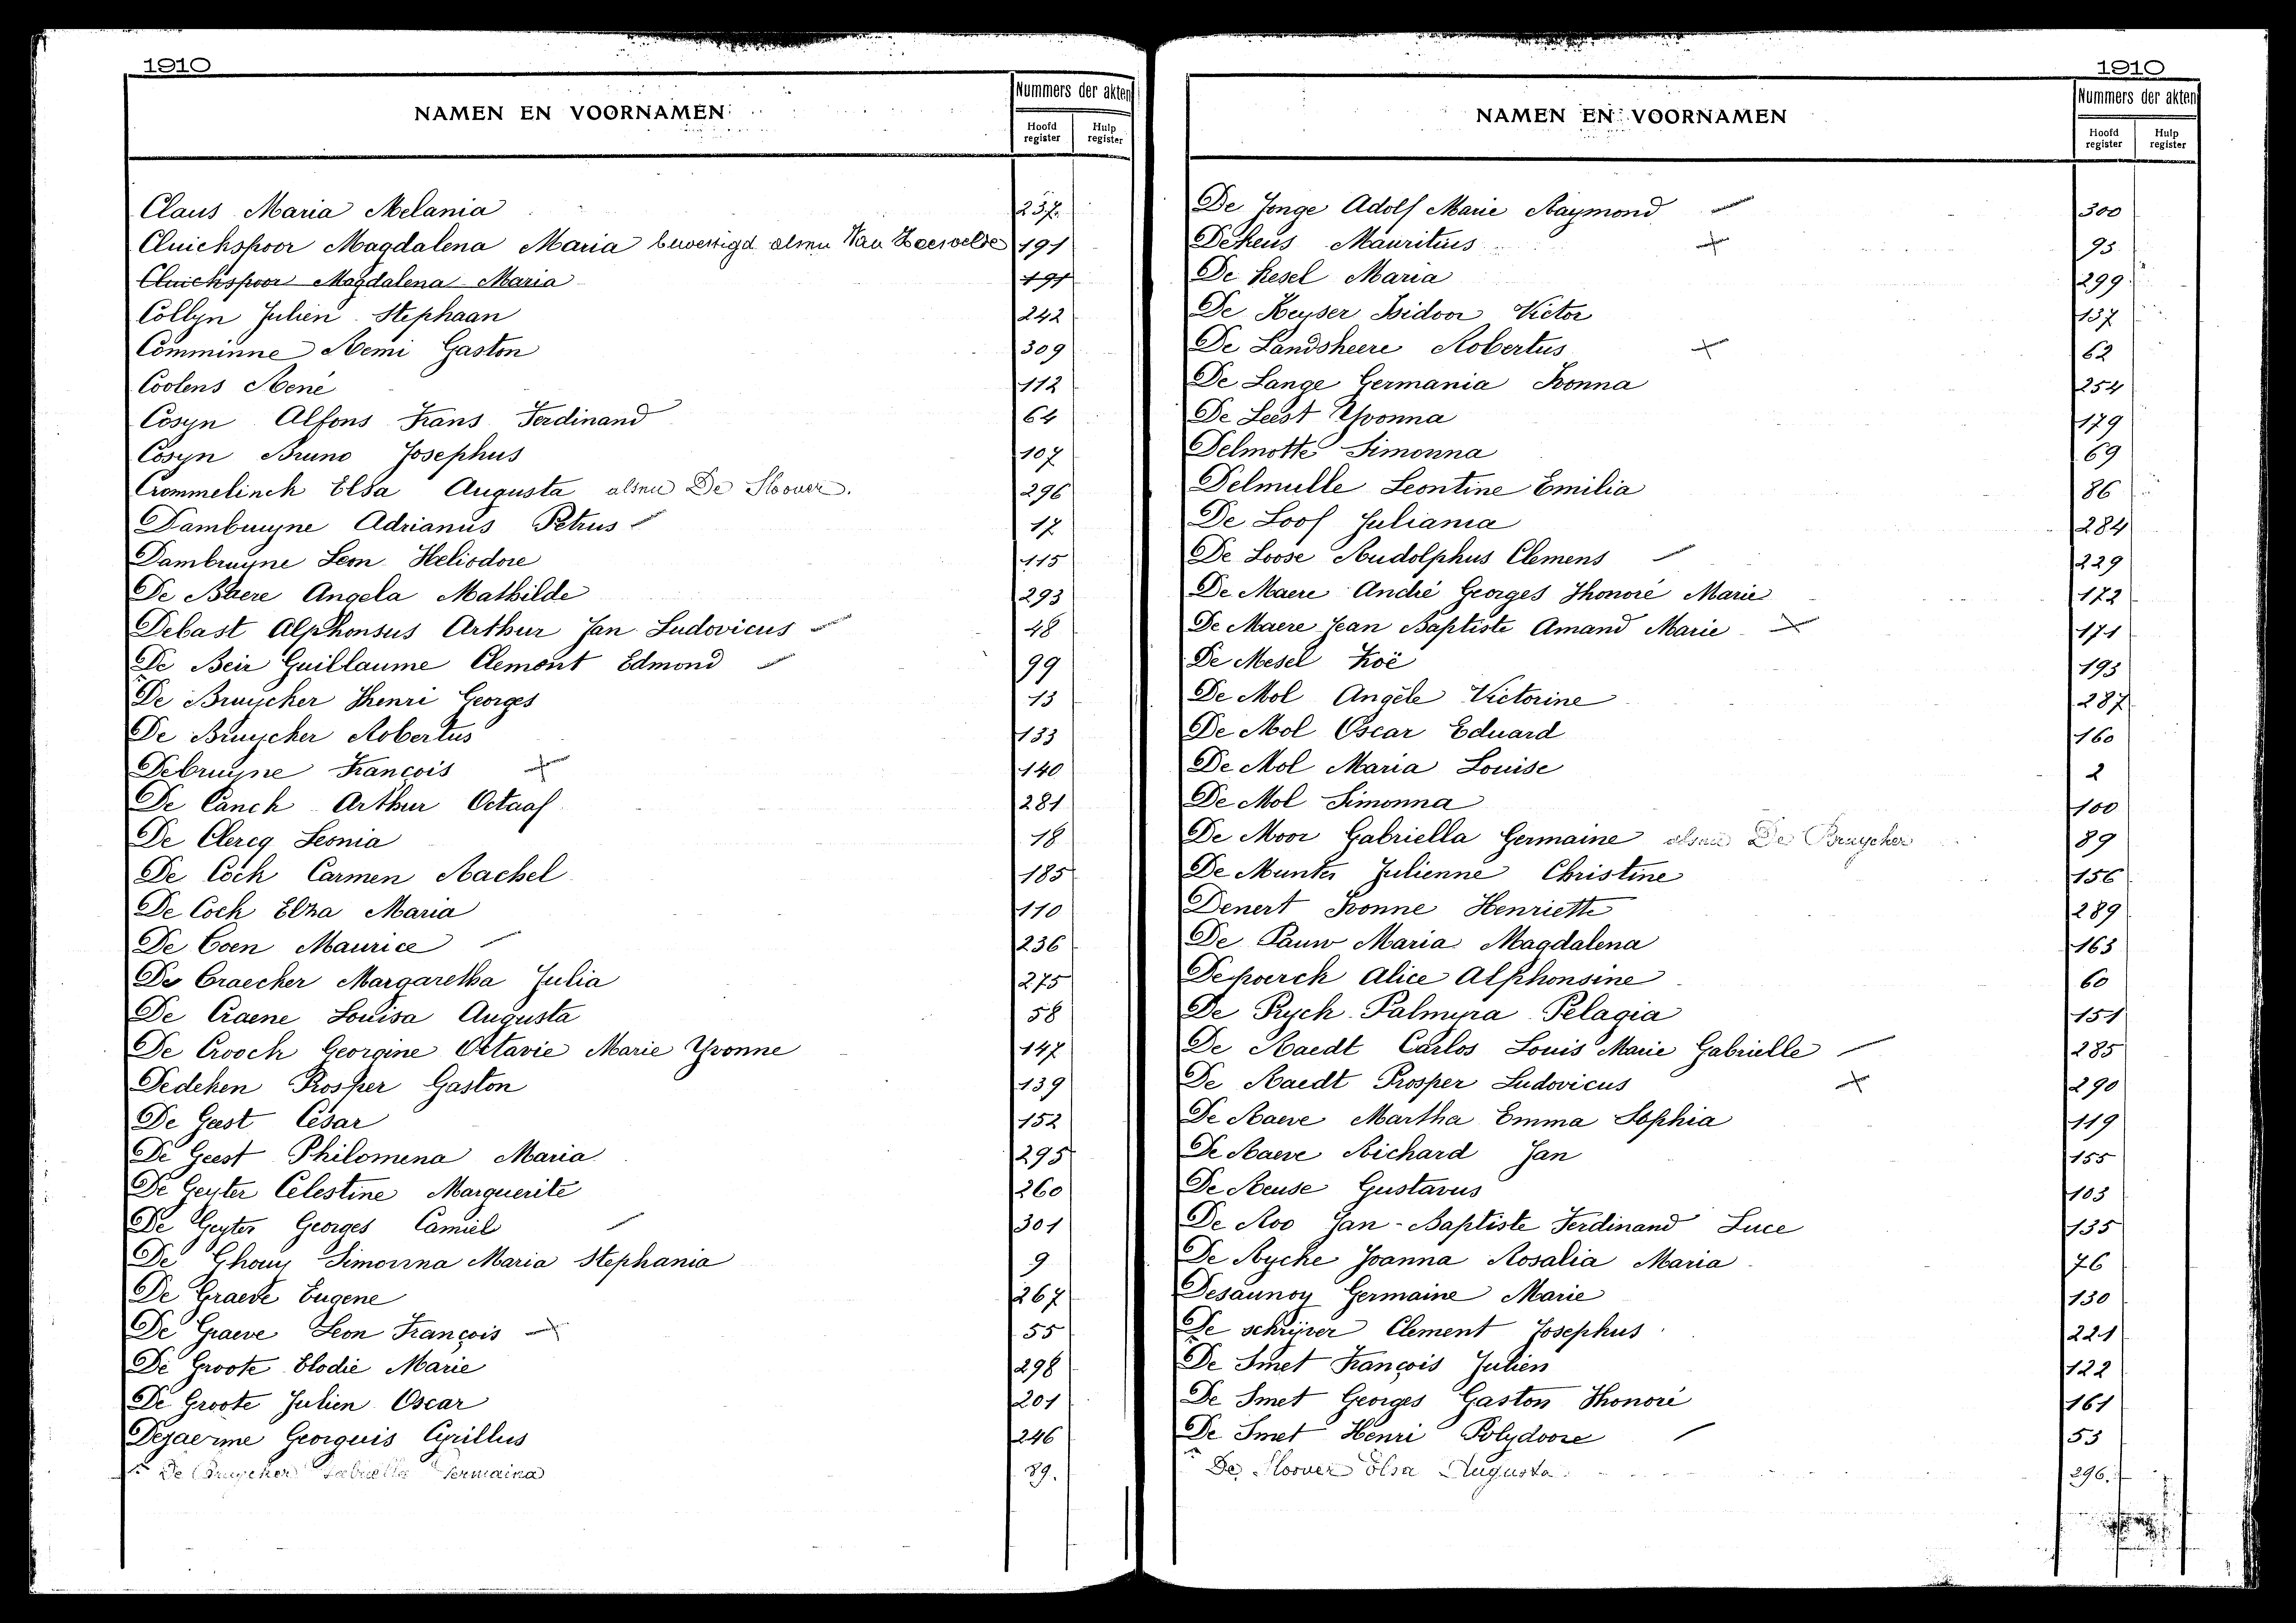 1910
NAMEN EN VOORNAMEN
Nummers der akten
Hoofd register
Hulp register
Claus Maria Melania 237.
Cluickspoor Magdalena Maria bevestigd alsnu Van Haesvelde 191
Cluickspoor Magdalena Maria 191
Collyn Julien Stephaan 242
Comminne Remi Gaston 309
Coolens René 112
Cosyn Alfons Frans Ferdinand 64
Cosyn Bruno Josephus 107
Crommelinck Elsa Augusta alsnu De Sloover. 296
Dambruyne Adrianus Petrus 17
Dambruyne Leon Heliodore 115
De Baere Angela Mathilde 293
Debast Alphonsus Arthur Jan Ludovicus 48
De Beir Guillaume Clemont Edmond 99
De Bruycker Henri Georges 13
De Bruycker Robertus 133
Debruyne François 140
De Canck Arthur Octaaf 281
De Clercq Leonia 18
De Cock Carmen Rachel 185
De Cock Elza Maria 110
De Coen Maurice 236
De Craecker Margaretha Julia 275
De Craene Louisa Augusta 58
De Croock Georgine Octavie Marie Yvonne 147
Dedeken Prosper Gaston 139
De Geest César 152
De Geest Philomena Maria 295
De Geyter Celestine Marguerite 260
De Geyter Georges Camiel 301
De Ghouy Simonna Maria Stephania 9
De Graeve Eugene 267
De Graeve Leon François 55
De Groote Elodie Marie 298
De Groote Julien Oscar 201
Dejaerme Georguis Cyrillus 246
De Bruycker Gabriella Germaina 89.
1910
NAMEN EN VOORNAMEN
Nummers der akten
Hoofd register
Hulp register
De Jonge Adolf Marie Raymond 300
Dekeus Mauritius 93
De Kesel Maria 299
De Keyser Isidoor Victor 137
De Landsheere Robertus 62
De Lange Germania Ivonna 254
De Leest Yvonna 179
Delmotte Simonna 69
Delmulle Leontine Emilia 86
De Loof Juliana 284
De Loose Rudolphus Clemens 229
De Maere André Georges Honoré Marie 172
De Maere Jean Baptiste Amand Marie 171
De Mesel Zoë 193
De Mol Angèle Victorine 287
De Mol Oscar Eduard 160
De Mol Maria Louise 2
De Mol Simonna 100
De Moor Gabriella Germaine alsnu De Bruycker 89
De Munter Julienne Christine 156
Denert Ivonne Henriette 289
De Pauw Maria Magdalena 163
Depoerck Alice Alphonsine 60
De Pryck Palmyra Pelagia 151
De Raedt Carlos Louis Marie Gabrielle 285
De Raedt Prosper Ludovicus 290
De Raeve Martha Emma Sophia 119
De Raeve Richard Jan 155
De Reuse Gustavus 103
De Roo Jan-Baptiste Ferdinand Luce 135
De Rycke Joanna Rosalia Maria 76
Desaunoy Germaine Marie 130
De schrijver Clement Josephus 221
De Smet François Julien 122
De Smet Georges Gaston Honoré 161
De Smet Henri Polydoore 53
De Sloover Elsa Augusta 296.